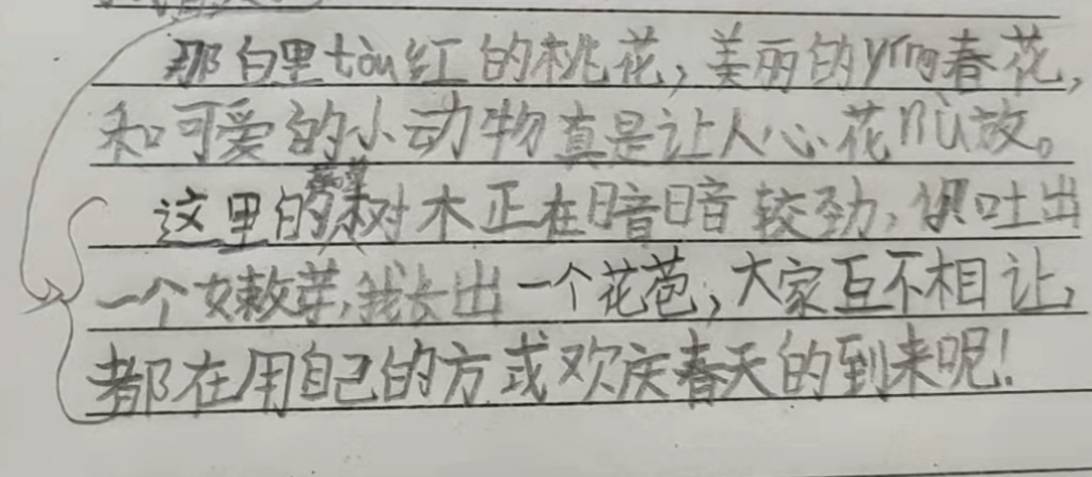 那白里tòu红的桃花，美丽的yíng春花，
和可爱的小动物真是让人心花nù放。
这里的树木正在暗暗较劲，你吐出
一个嫩芽，我长出一个花苞，大家互不相让，
都在用自己的方式欢庆春天的到来呢！